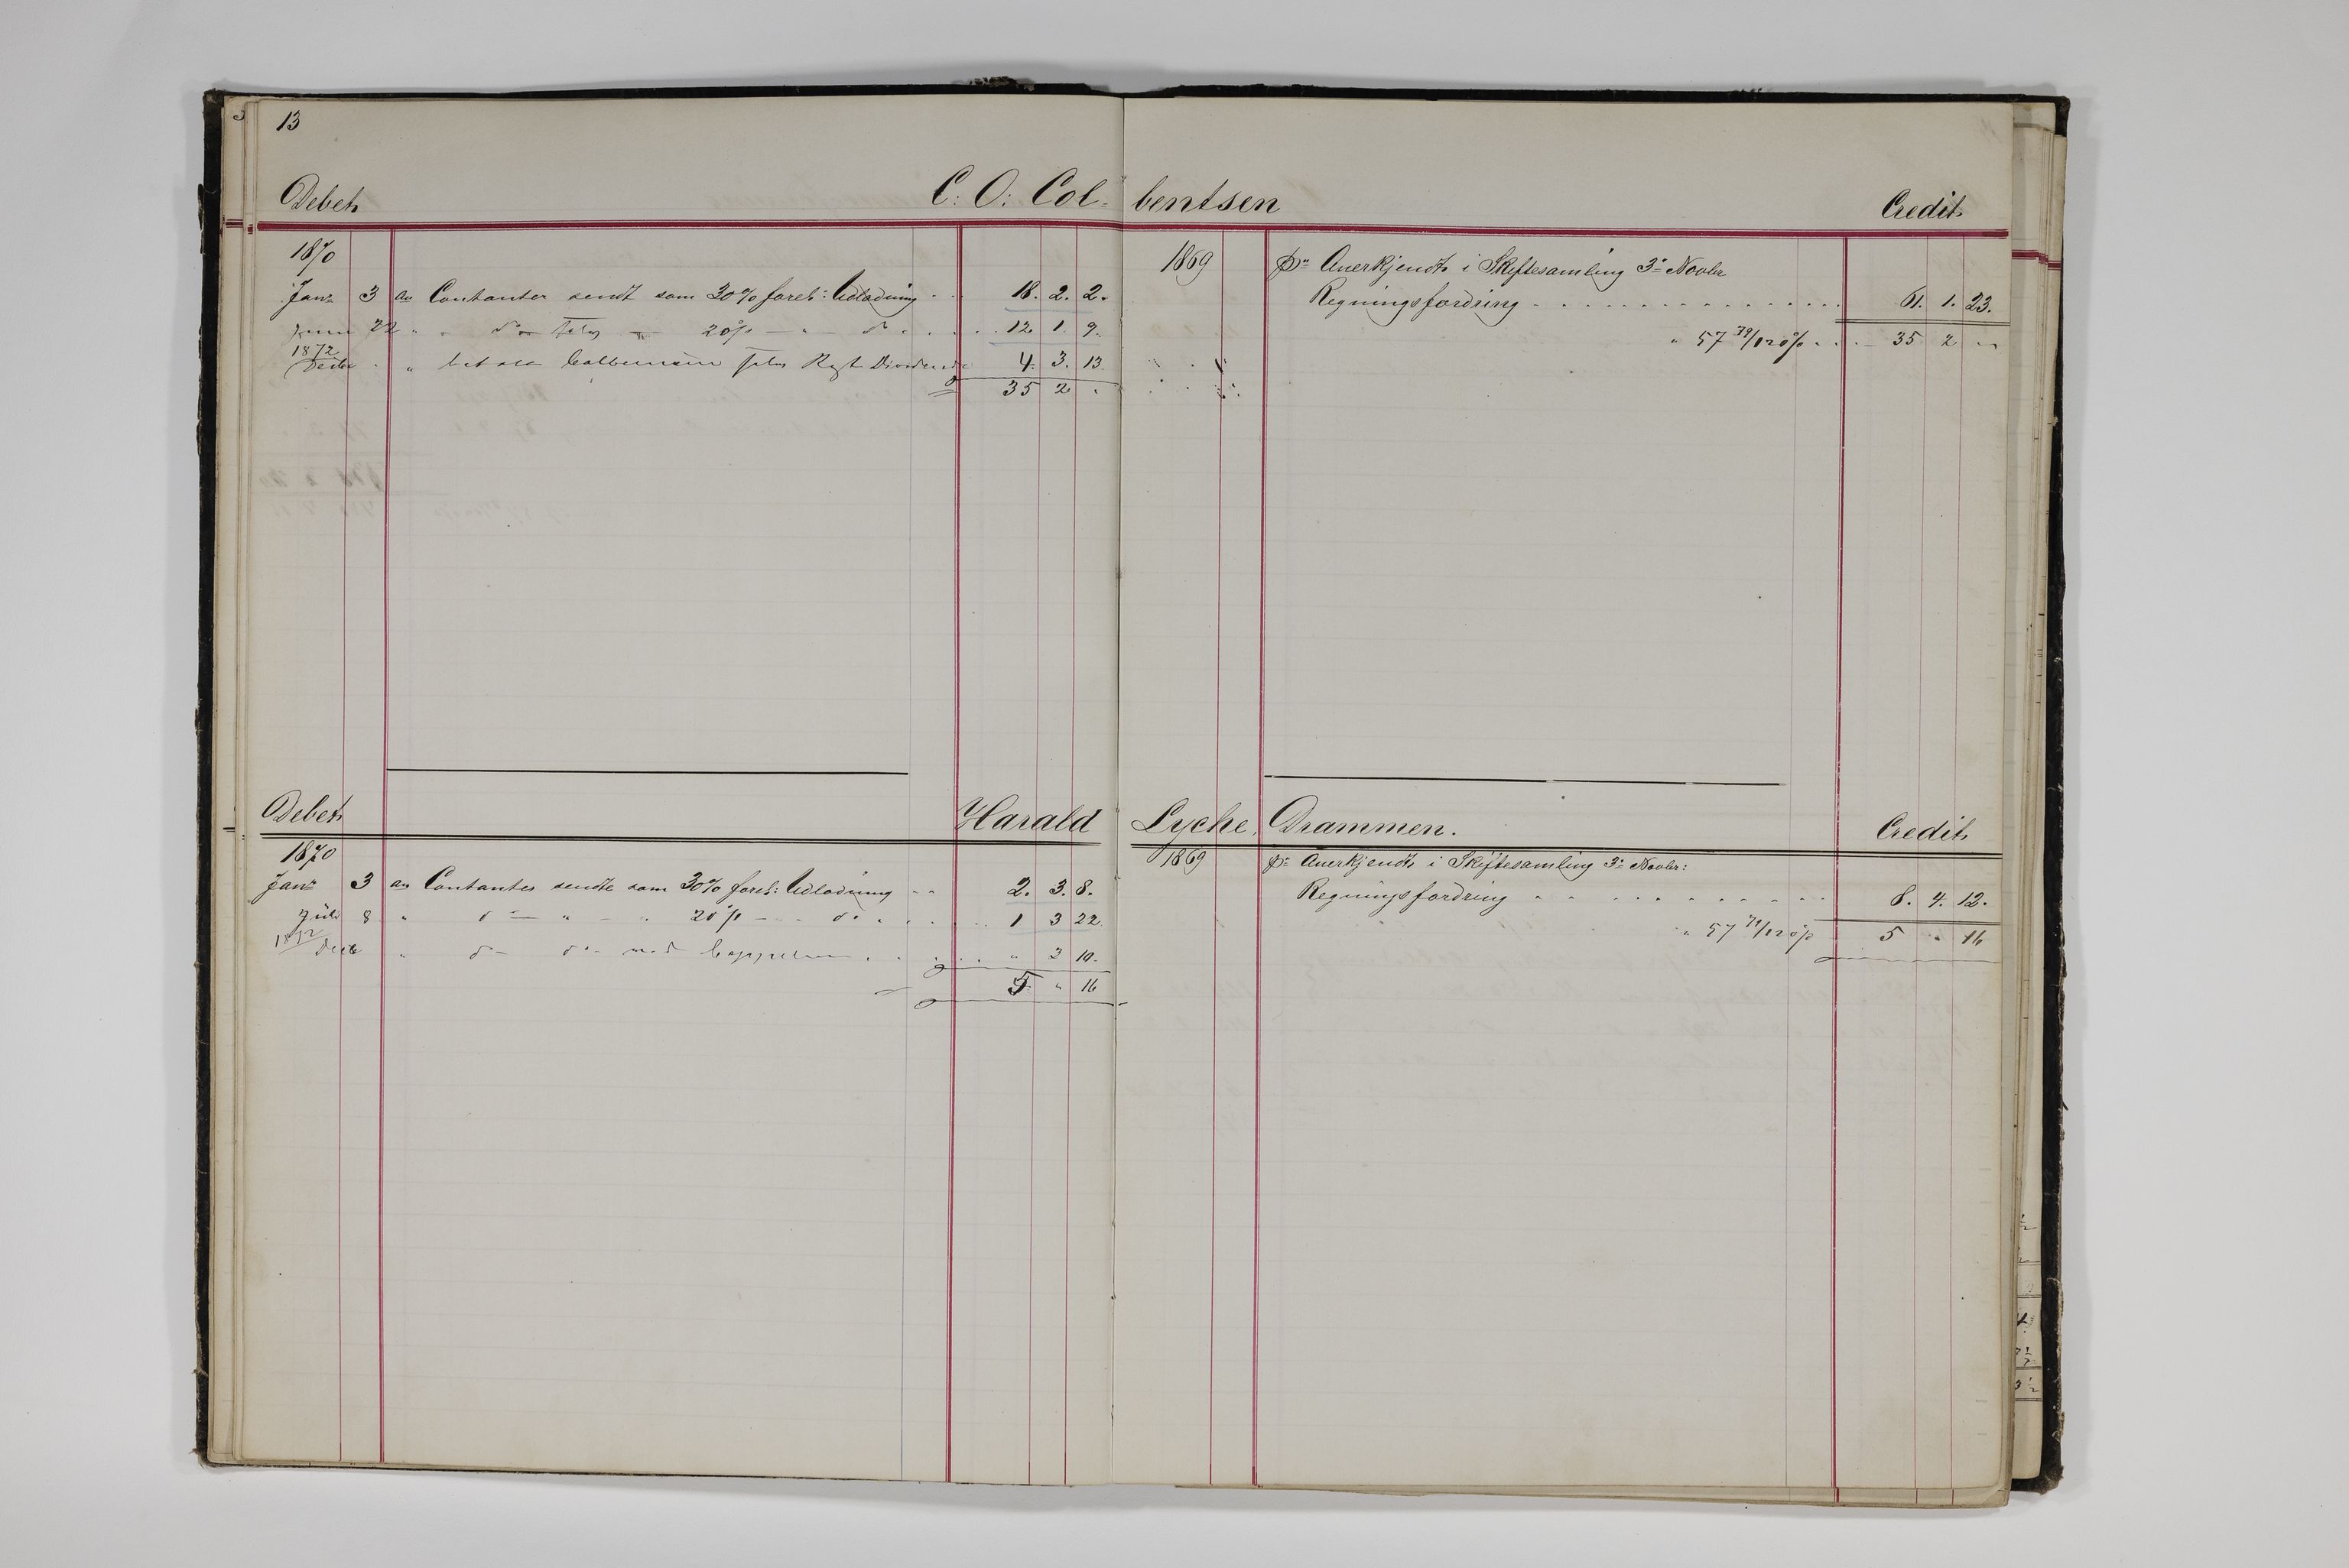 13
Debet C. O. Colbentsen Credit
1870
Janr 3 an Contanter sendt som 30% forel: Udlodning 18. 2. 2.
Juni 22 " do 20% " do 12 1. 9.
1872
Decbr " Dividende 4. 3. 13.
35 2 "
1869 pr Anerkjendt i Skiftesamling 3e Novbr
Regningsfordring 61. 1. 23.
" 57 79/120% 35 2 "
Debet Harald Lyche, Drammen. Credit
1870
Janr 3 an Contanter sendte som 30% forel: Udlodning 2. 3. 8.
Juli 8 " do " " 20% do 1 3 22
1872
Decb " do do med " 3 10.
5 " 16
1869 pr Anerkjendt i Skiftesamling 3e Novbr:
Regningsfordring 8. 4. 12.
" 57 79/120% 5 " 16